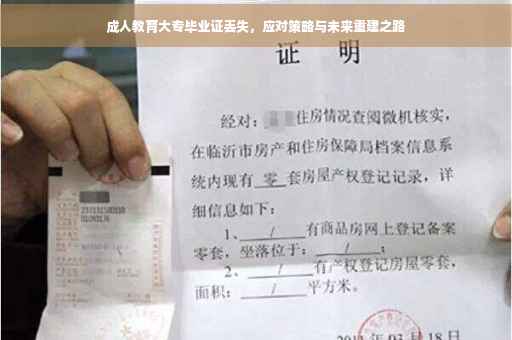 成人教育大专毕业证丢失，应对策略与未来重建之路
证 明
经对：住房情况查阅微机核实，
在临沂市房产和住房保障局档案信息系
统内现有 零 套房屋产权登记记录，详
细信息如下：
1、 / 有商品房网上登记备案
零套，坐落位于： / ；
2、 / 有产权登记房屋零套，
面积： / 平方米。
03月18日